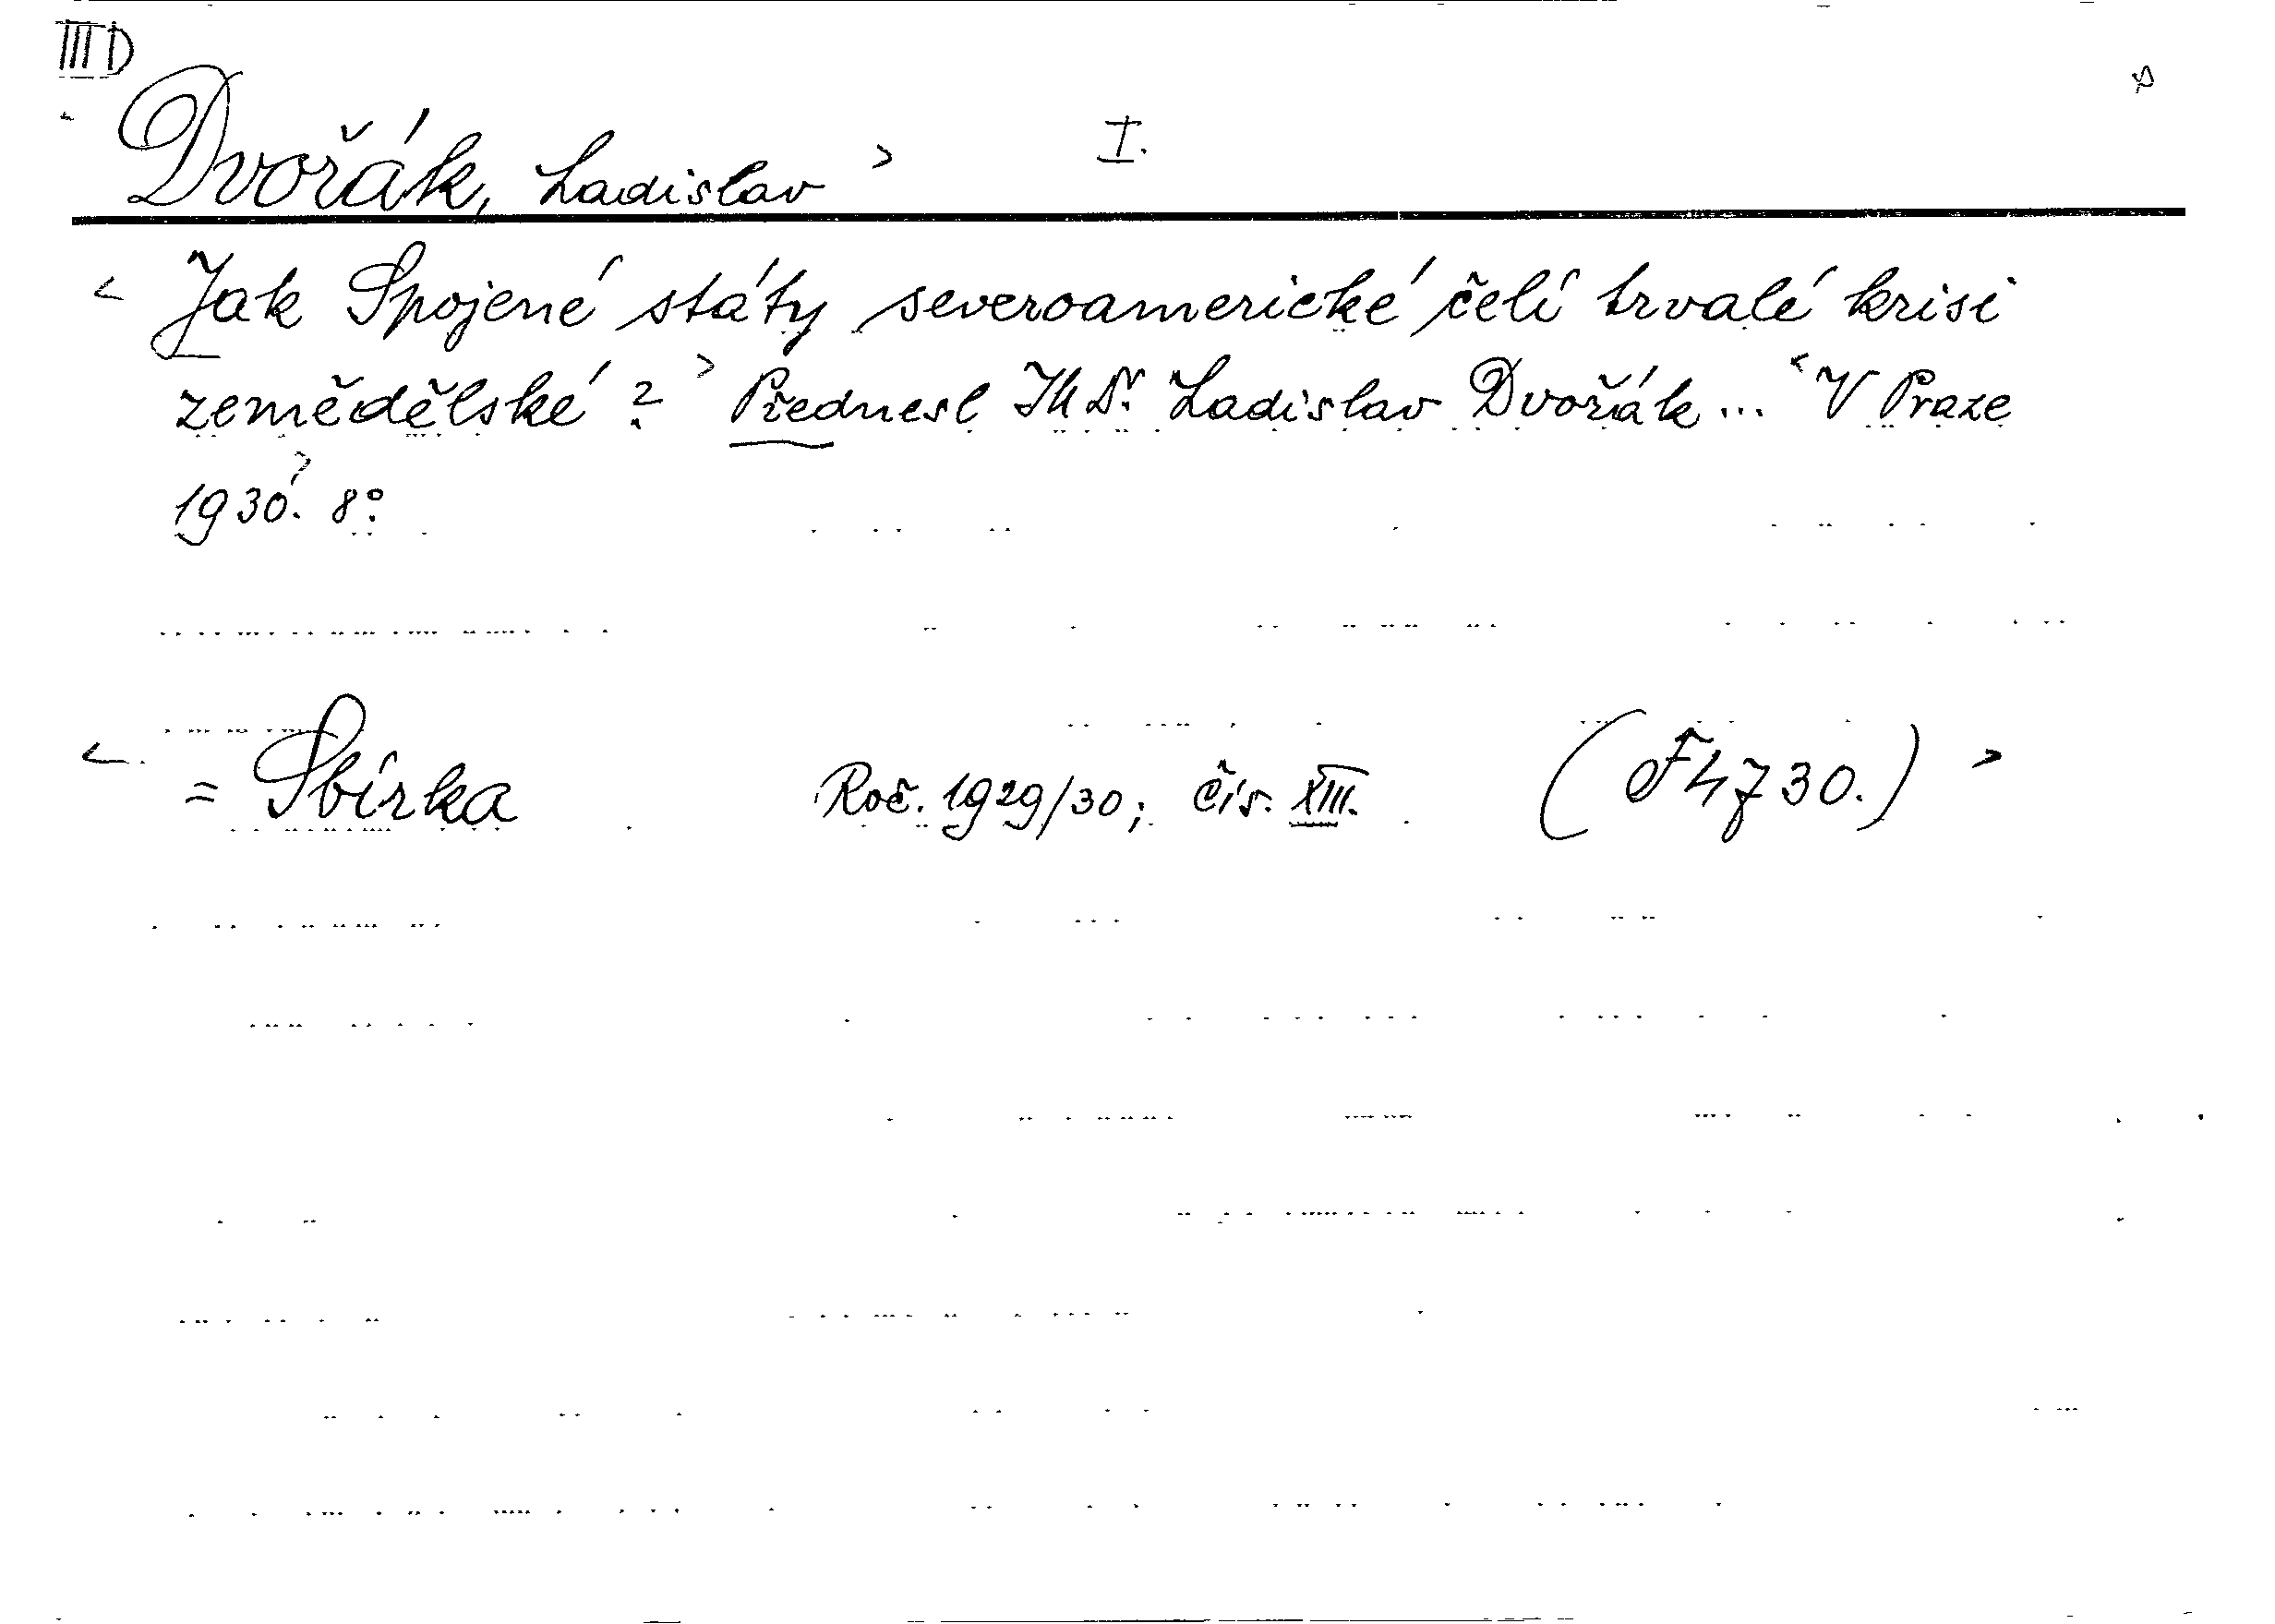 III D
Dvořák, Ladislav > I.
< Jak Spojené státy severoamerické čelí trvalé krisi
zemědělské? > Přednesl Dr. Ladislav Dvořák ... < V Praze
1930. > 8°.
< = Sbírka Roč. 1929/30; čís. XIII. (F 4730.) >